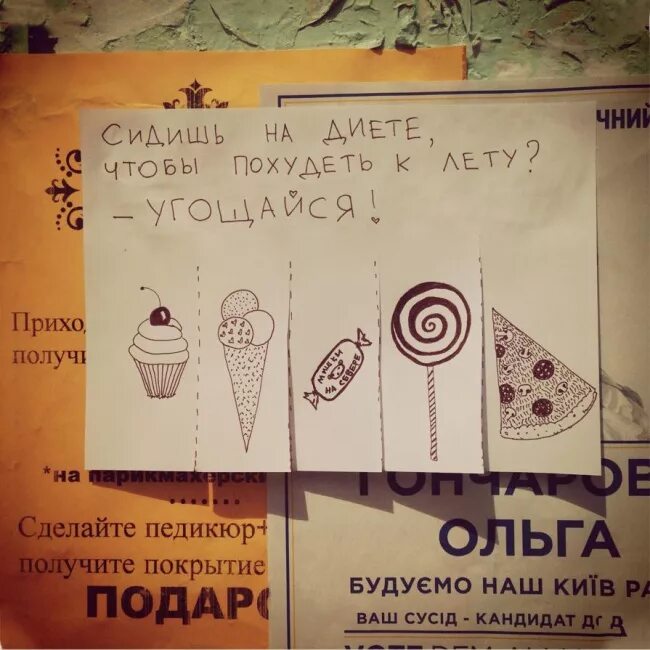 СИДИШЬ НА ДИЕТЕ,
ЧТОБЫ ПОХУДЕТЬ К ЛЕТУ?
– УГОЩАЙСЯ!
МИШКИ
НА
СЕВЕРЕ
*на парикмахерск
Сделайте педикюр+
получите покрытие
ПОДАР
ЧНИЙ
ГОНЧАРОВ
ОЛЬГА
БУДУЄМО НАШ КИЇВ
ВАШ СУСІД - КАНДИДАТ